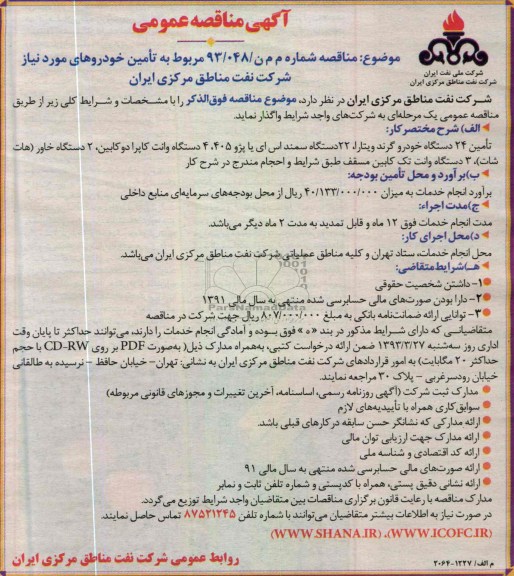 آگهی مناقصه عمومی
شرکت ملی نفت ایران
شرکت نفت مناطق مرکزی ایران
موضوع: مناقصه شماره م م ن/۹۳/۰۴۸ مربوط به تأمین خودروهای مورد نیاز
شرکت نفت مناطق مرکزی ایران
شرکت نفت مناطق مرکزی ایران در نظر دارد، موضوع مناقصه فوق‌الذکر را با مشخصات و شرایط کلی زیر از طریق
مناقصه عمومی یک مرحله‌ای به شرکت‌های واجد شرایط واگذار نماید.
الف) شرح مختصر کار:
تأمین ۲۴ دستگاه خودرو گرند ویتارا، ۲۲دستگاه سمند اس ای یا پژو ۴۰۵، ۴ دستگاه وانت کاپرا دوکابین، ۲ دستگاه خاور (هات
شات)، ۳ دستگاه وانت تک کابین مسقف طبق شرایط و احجام مندرج در شرح کار
ب)برآورد و محل تأمین بودجه:
برآورد انجام خدمات به میزان ۴۰/۱۳۳/۰۰۰/۰۰۰ ریال از محل بودجه‌های سرمایه‌ای منابع داخلی
ج)مدت اجراء:
مدت انجام خدمات فوق ۱۲ ماه و قابل تمدید به مدت ۲ ماه دیگر می‌باشد.
د)محل اجرای کار:
محل انجام خدمات، ستاد تهران و کلیه مناطق عملیاتی شرکت نفت مناطق مرکزی ایران می‌باشد.
هـ)شرایط متقاضی:
۱- داشتن شخصیت حقوقی
۲- دارا بودن صورت‌های مالی حسابرسی شده منتهی به سال مالی ۱۳۹۱
۳- توانایی ارائه ضمانت‌نامه بانکی به مبلغ ۸۰۷/۰۰۰/۰۰۰ ریال جهت شرکت در مناقصه
متقاضیانی که دارای شرایط مذکور در بند «ه» فوق بوده و آمادگی انجام خدمات را دارند، می‌توانند حداکثر تا پایان وقت
اداری روز سه‌شنبه ۱۳۹۳/۳/۲۷ ضمن ارائه درخواست کتبی، به‌همراه مدارک ذیل( به‌صورت PDF بر روی CD-RW با حجم
حداکثر ۲۰ مگابایت) به امور قراردادهای شرکت نفت مناطق مرکزی ایران به نشانی: تهران- خیابان حافظ - نرسیده به طالقانی
خیابان رودسرغربی - پلاک ۳۰ مراجعه نمایند.
مدارک ثبت شرکت (آگهی روزنامه رسمی، اساسنامه، آخرین تغییرات و مجوزهای قانونی مربوطه)
سوابق‌کاری همراه با تأییدیه‌های لازم
ارائه مدارکی که نشانگر حسن سابقه در کارهای قبلی باشد.
ارائه مدارک جهت ارزیابی توان مالی
ارائه کد اقتصادی و شناسه ملی
ارائه صورت‌های مالی حسابرسی شده منتهی به سال مالی ۹۱
ارائه نشانی دقیق پستی، همراه با کدپستی و شماره تلفن ثابت و نمابر
مدارک مناقصه با رعایت قانون برگزاری مناقصات بین متقاضیان واجد شرایط توزیع می‌گردد.
در صورت نیاز به اطلاعات بیشتر متقاضیان می‌توانند با شماره تلفن ۸۷۵۲۱۲۴۵ تماس حاصل نمایند.
(WWW.SHANA.IR) ،(WWW.ICOFC.IR)
روابط عمومی شرکت نفت مناطق مرکزی ایران
م الف/ ۱۲۲۷-۲۰۶۴
ParsNamadData